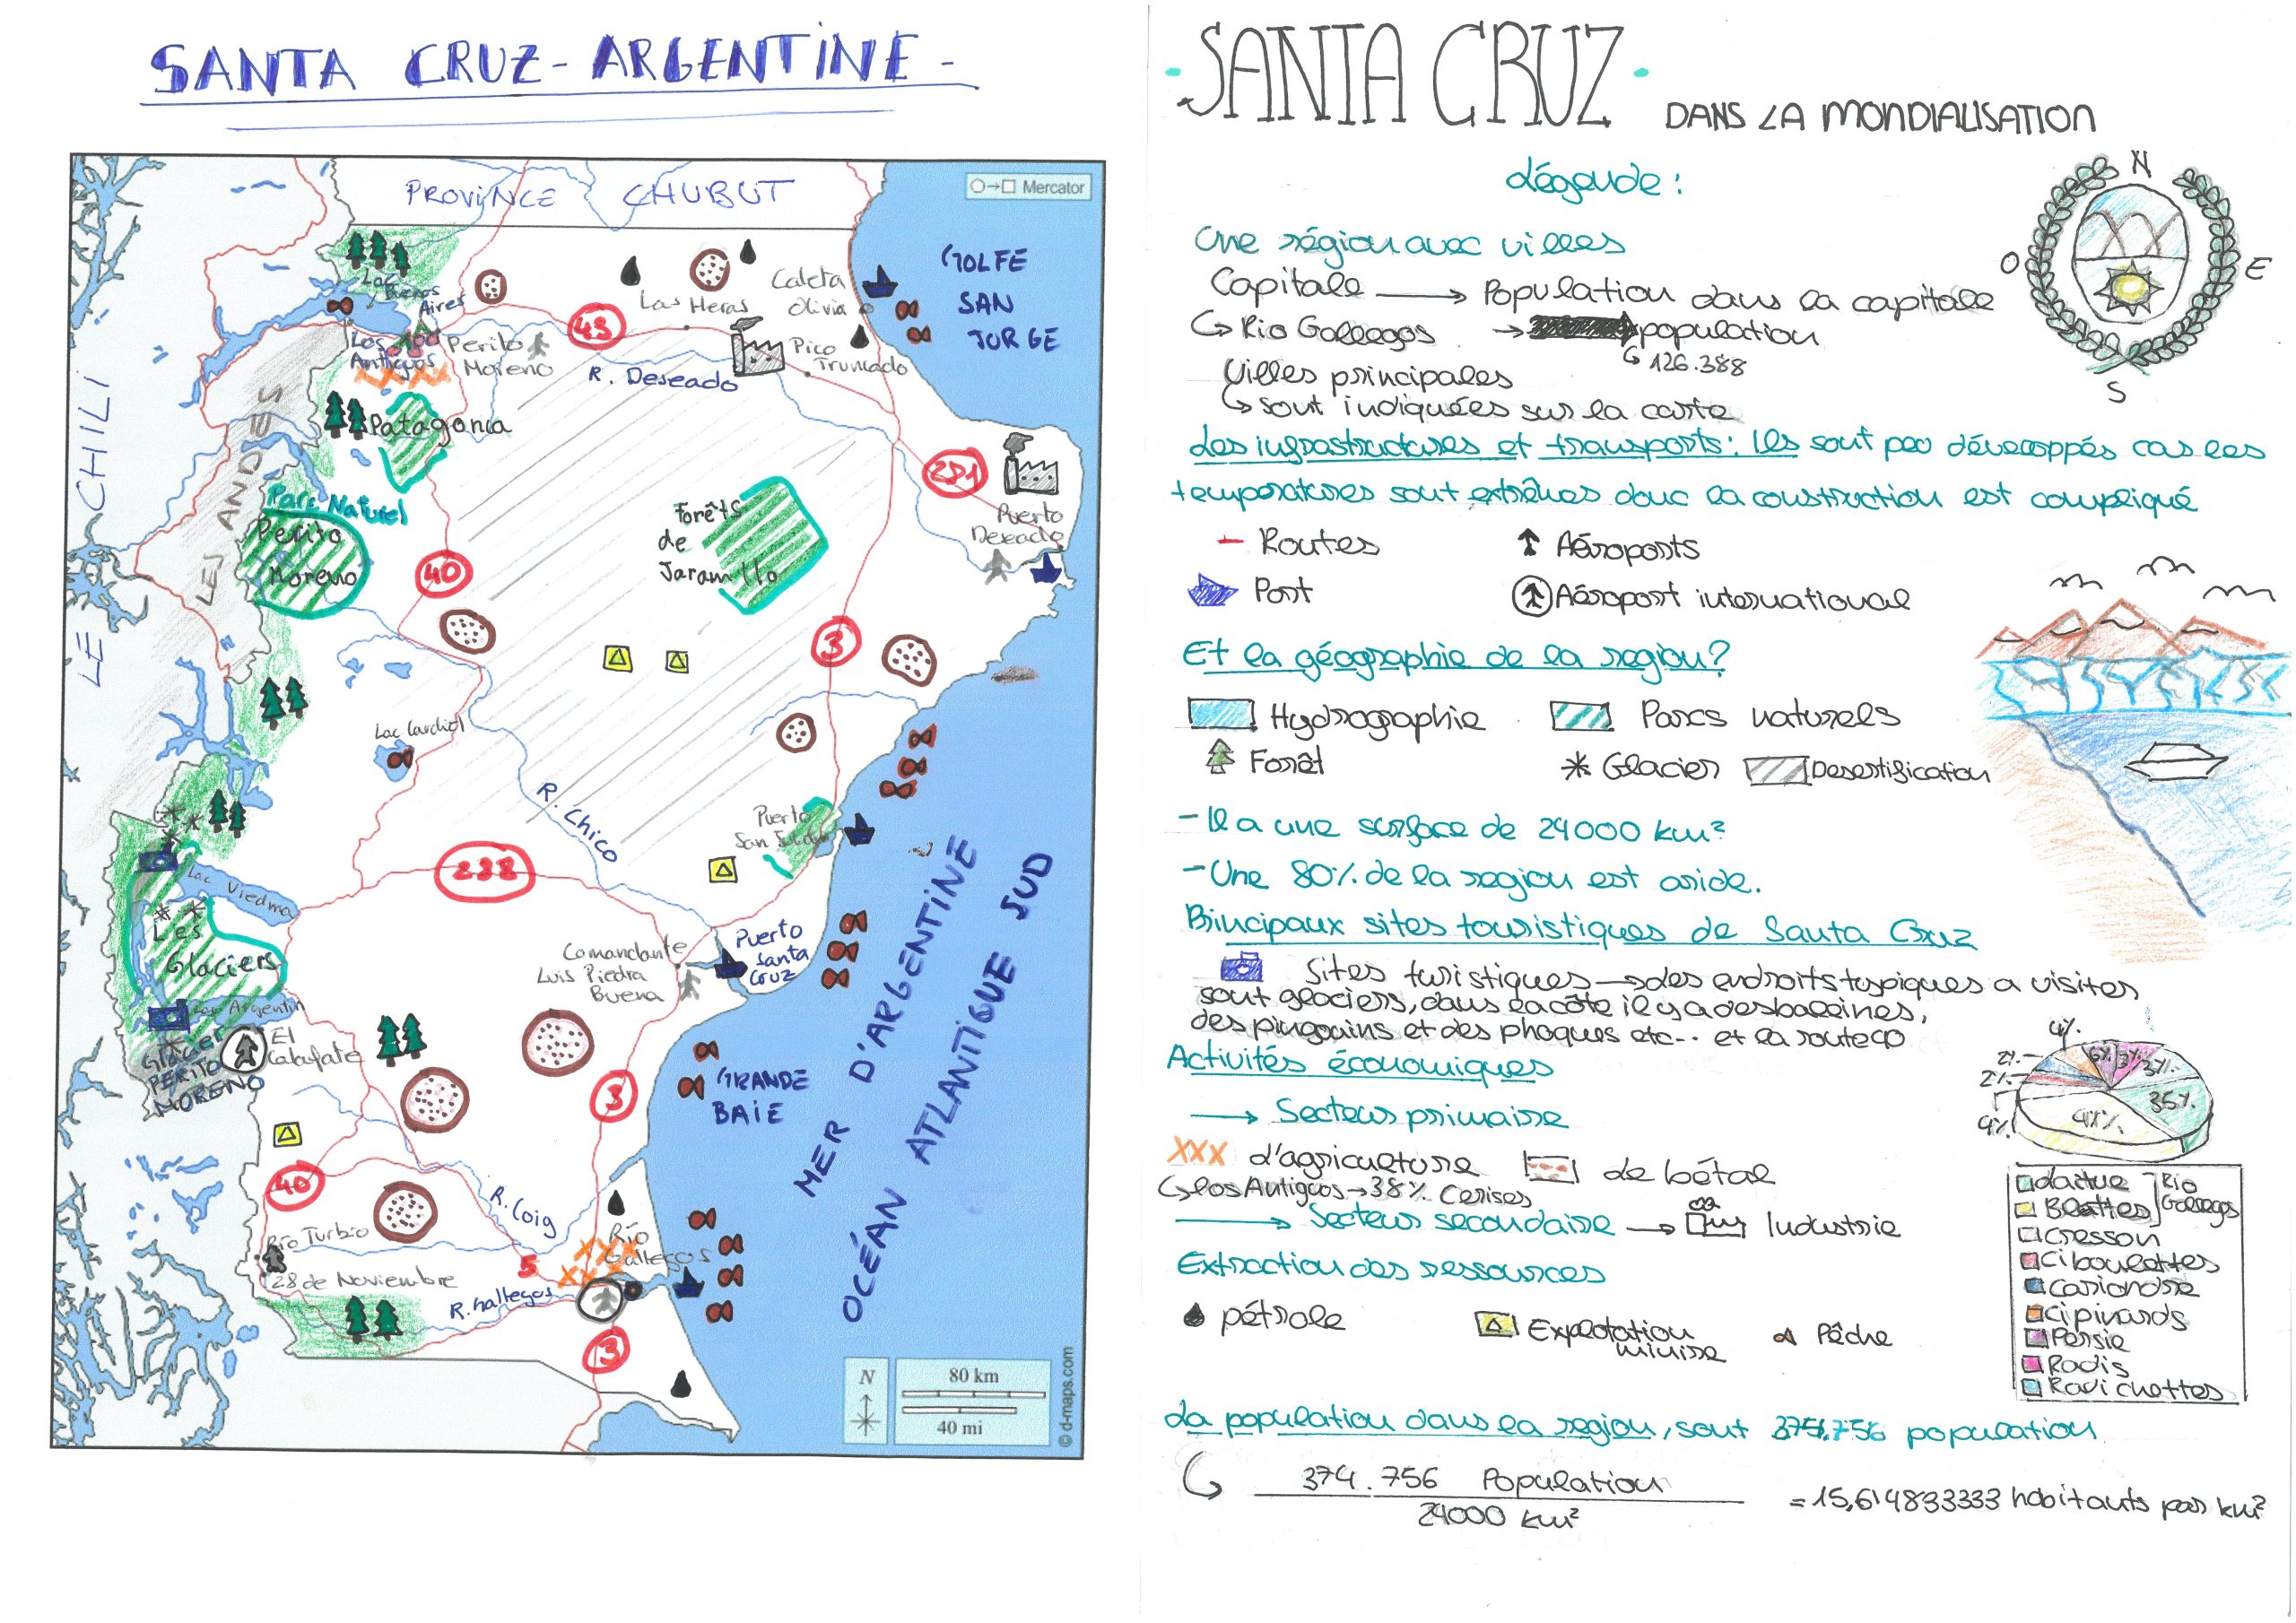 SANTA CRUZ - ARGENTINE -
PROVINCE CHUBUT
Mercator
LE CHILI
LES ANDES
GOLFE
SAN
JORGE
Lac
Buenos
Aires
Los
Antiguos
Perito
Moreno
43
Las Heras
Caleta
Olivia
Pico
Truncado
R. Deseado
Patagonia
281
Puerto
Deseado
Parc Naturel
Perito
Moreno
40
Forêts
de
Jaramillo
3
Lac Cardiel
R. Chico
Puerto
San Julián
288
Lac Viedma
Les
Glaciers
Lac Argentin
Glacier
PERITO
MORENO
El
Calafate
Comandante
Luis Piedra
Buena
Puerto
Santa
Cruz
3
GRANDE
BAIE
MER D'ARGENTINE
OCÉAN ATLANTIQUE SUD
40
R. Coig
Río Turbio
28 de Noviembre
5
Río
Gallegos
R. Gallegos
3
N
80 km
40 mi
© d-maps.com
- SANTA CRUZ - DANS LA MONDIALISATION
Légende :
N
O
E
S
Une région avec villes
Capitale → Population dans la capitale
↳ Rio Gallegos → population
↳ 126.388
Villes principales
↳ sont indiquées sur la carte
Les infrastructures et transports : Ils sont peu développés car les
temperatures sont extrêmes donc la construction est compliqué
Routes
Aéroports
Port
Aéroport international
Et la géographie de la region?
Hydrographie
Parcs naturels
Forêt
Glacier
Desertification
- Il a une surface de 24000 km²
- Une 80% de la region est aride.
Principaux sites touristiques de Santa Cruz
Sites turistiques → des endroits typiques a visiter
sont glaciers, dans la côte il y a des baleines,
des pingouins et des phoques etc.. et la route 40
Activités économiques
→ Secteur primaire
XXX d'agriculture
de bétail
↳ los Antiguos → 38% Cerises
→ Secteur secondaire → Industrie
Extraction des ressources
pétrole
Explotation
minire
Pêche
4%
2%
2%
4%
6%
3%
3%
35%
41%
Laitue
Blettes
Rio
Gallegos
Cresson
Ciboulettes
Coriandre
Cipinards
Persie
Radis
Radichettes
La population dans la region, sont 374.756 population
374.756 Population
24000 km²
= 15,614833333 habitants par km²